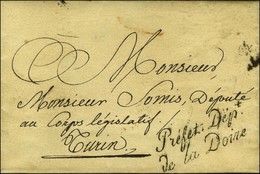 Monsieur,
Monsieur Somis, Député
au Corps législatif
Turin
Préfet. Dépt.
de la Doire